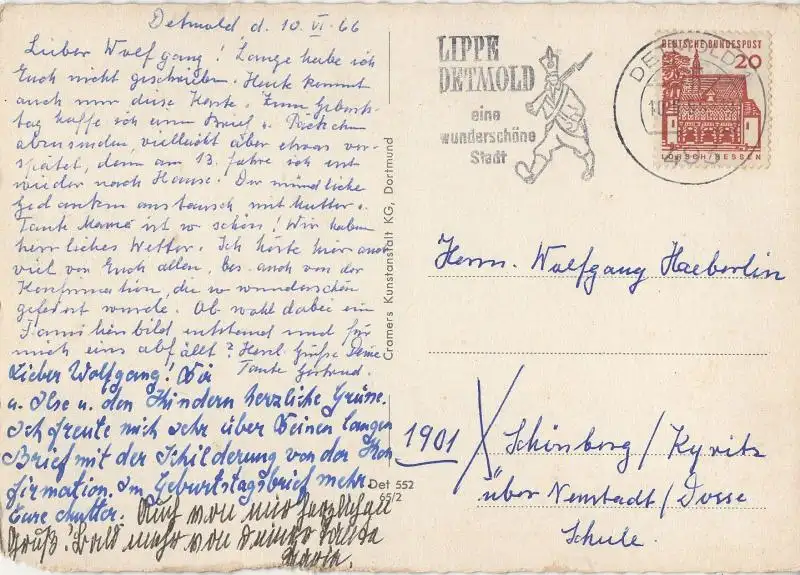 Detmold, d. 10. VI. 66
Lieber Wolfgang! Lange habe ich
Euch nicht geschrieben. Heute kommt
auch nur diese Karte. Zum Geburts-
tag hoffe ich einen Brief u. Päckchen
abzusenden, vielleicht aber etwas ver-
spätet, denn am 13. fahre ich erst
wieder nach Hause. Der mündliche
Gedankenaustausch mit Mutter u.
Tante Mamé ist so schön! Wir haben
herrliches Wetter. Ich hörte hier auch
viel von Euch allen, bes. auch von der
Konfirmation, die so wunderschön
gefeiert wurde. Ob wohl dabei ein
Familienbild entstand und für
mich eins abfällt? Herzl. Grüße Deine
Tante Gertrud.
Lieber Wolfgang! Dir
u. Ilse u. den Kindern herzliche Grüße.
Ich freute mich sehr über Deinen langen
Brief mit der Schilderung von der Kon
firmation. Im Geburtstagsbrief mehr.
Eure Mutter. Auch von mir herzlichen
Gruß! Bald mehr von Deiner Tante
Maria.
Cramers Kunstanstalt KG, Dortmund
Det 552
65/2
LIPPE
DETMOLD
eine
wunderschöne
Stadt
DETMOLD
DEUTSCHE BUNDESPOST
20
LORSCH/HESSEN
Herrn Wolfgang Haeberlin
1901 Schönberg/Kyritz
über Neustadt/Dosse
Schule.